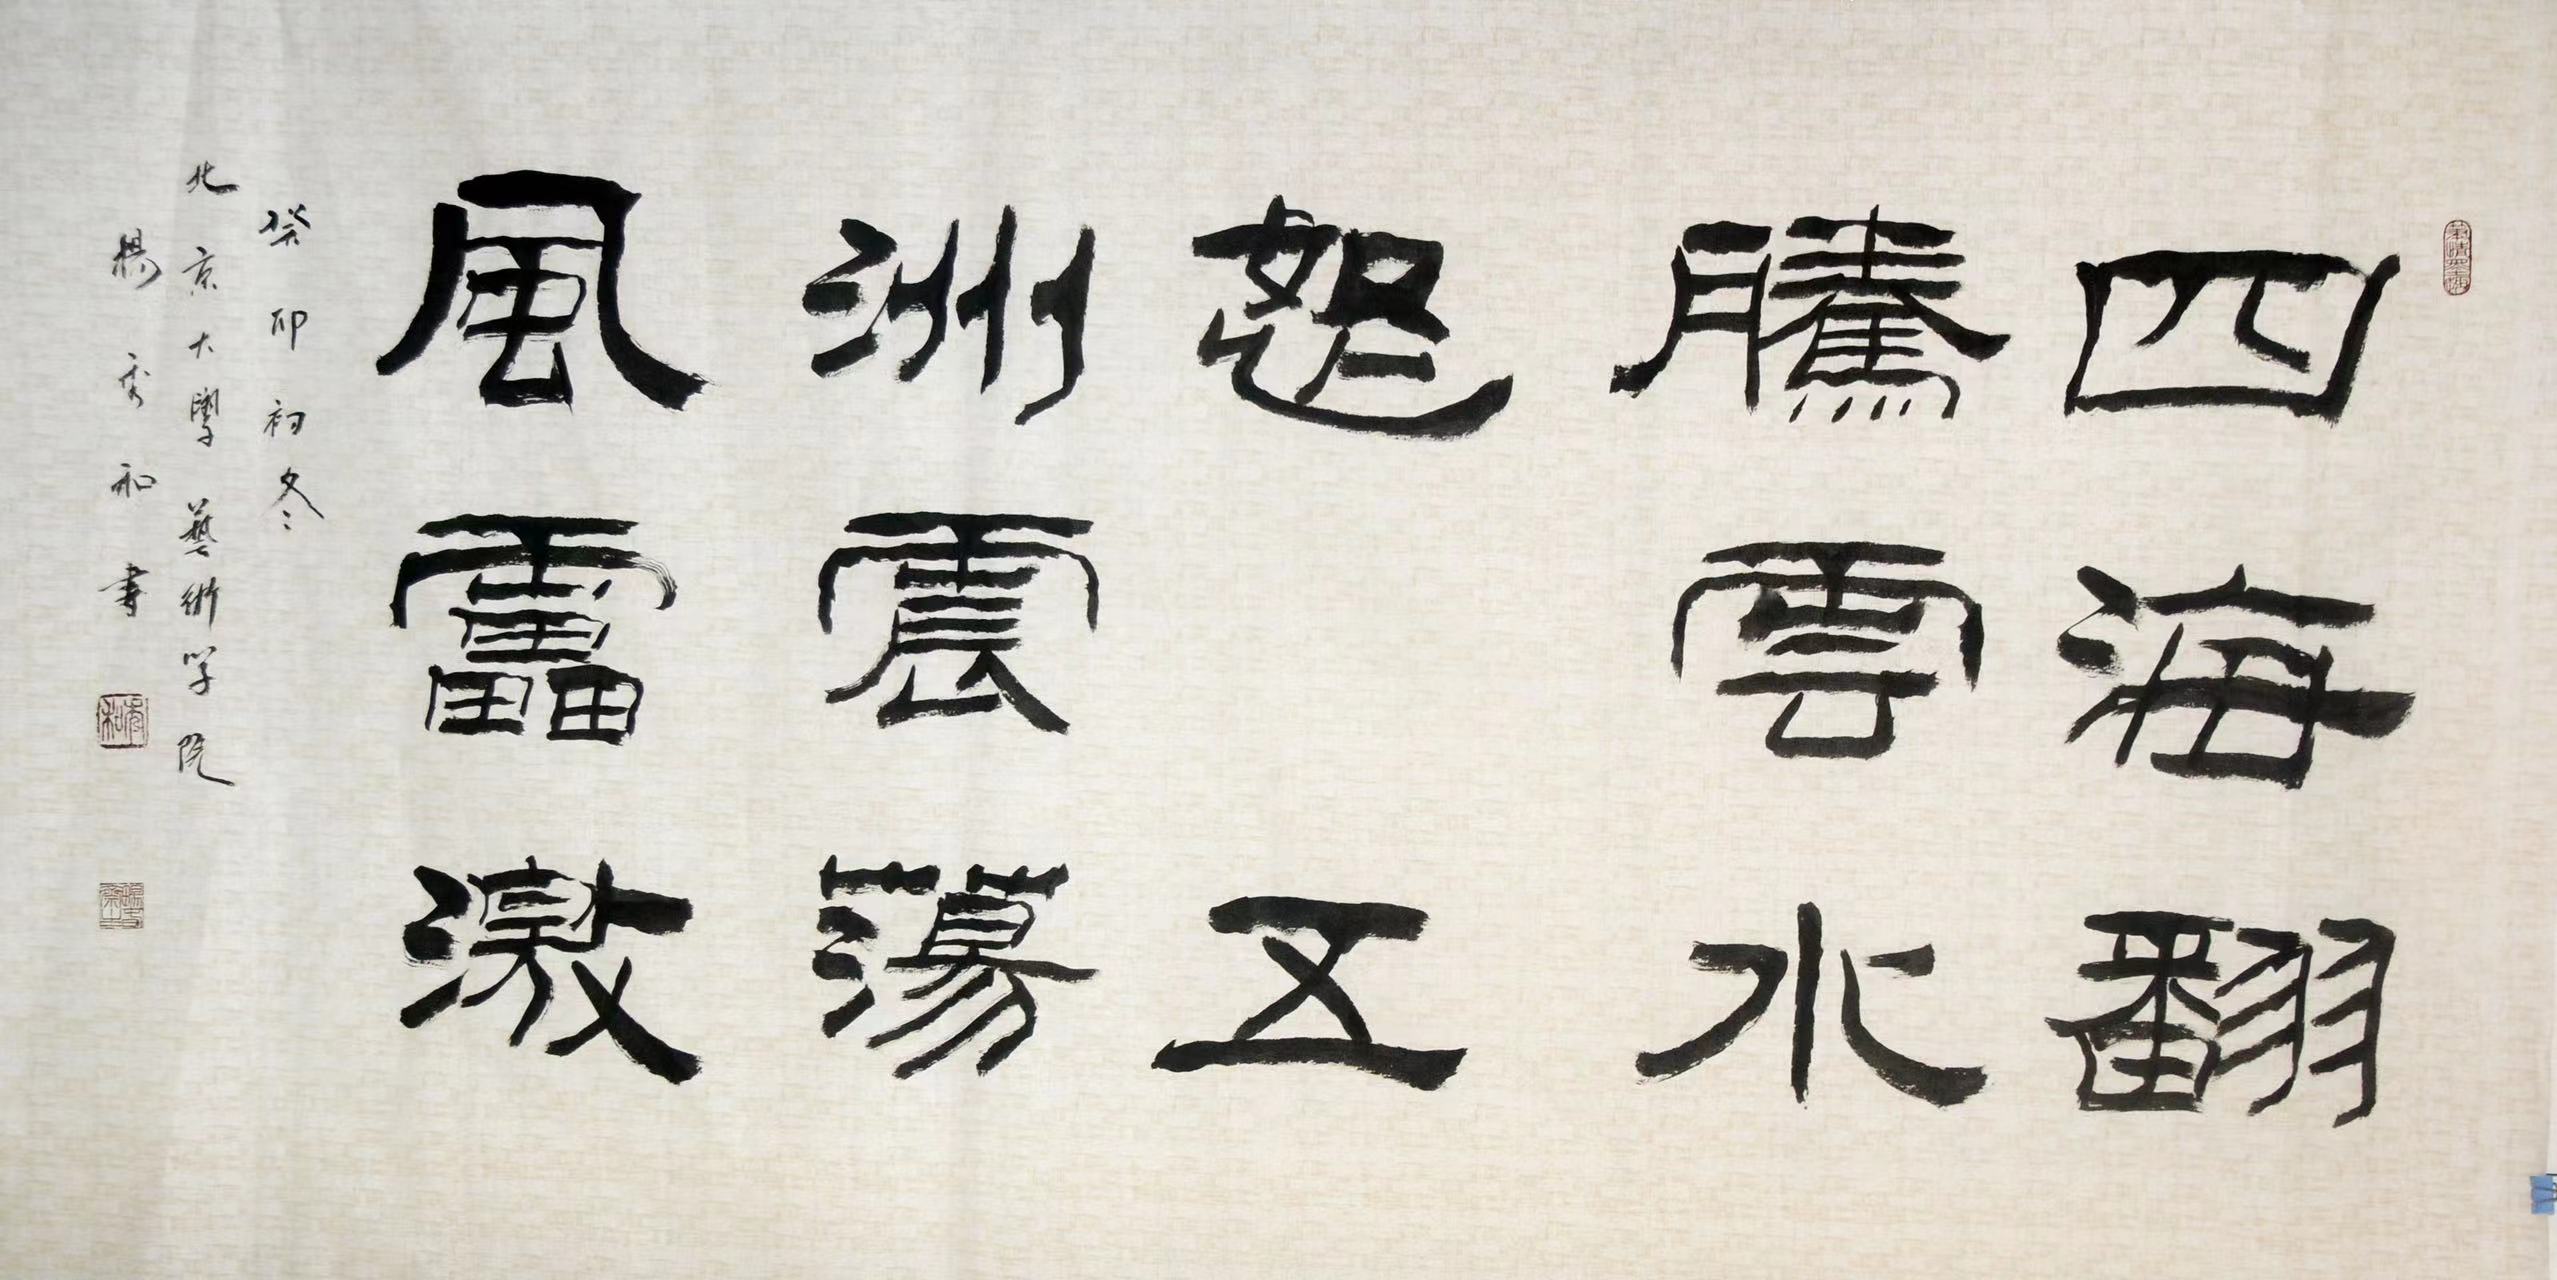 四海翻
騰雲水
恕五
洲震蕩
風靁激
癸卯初冬
北京大學藝術学院
楊秀和書